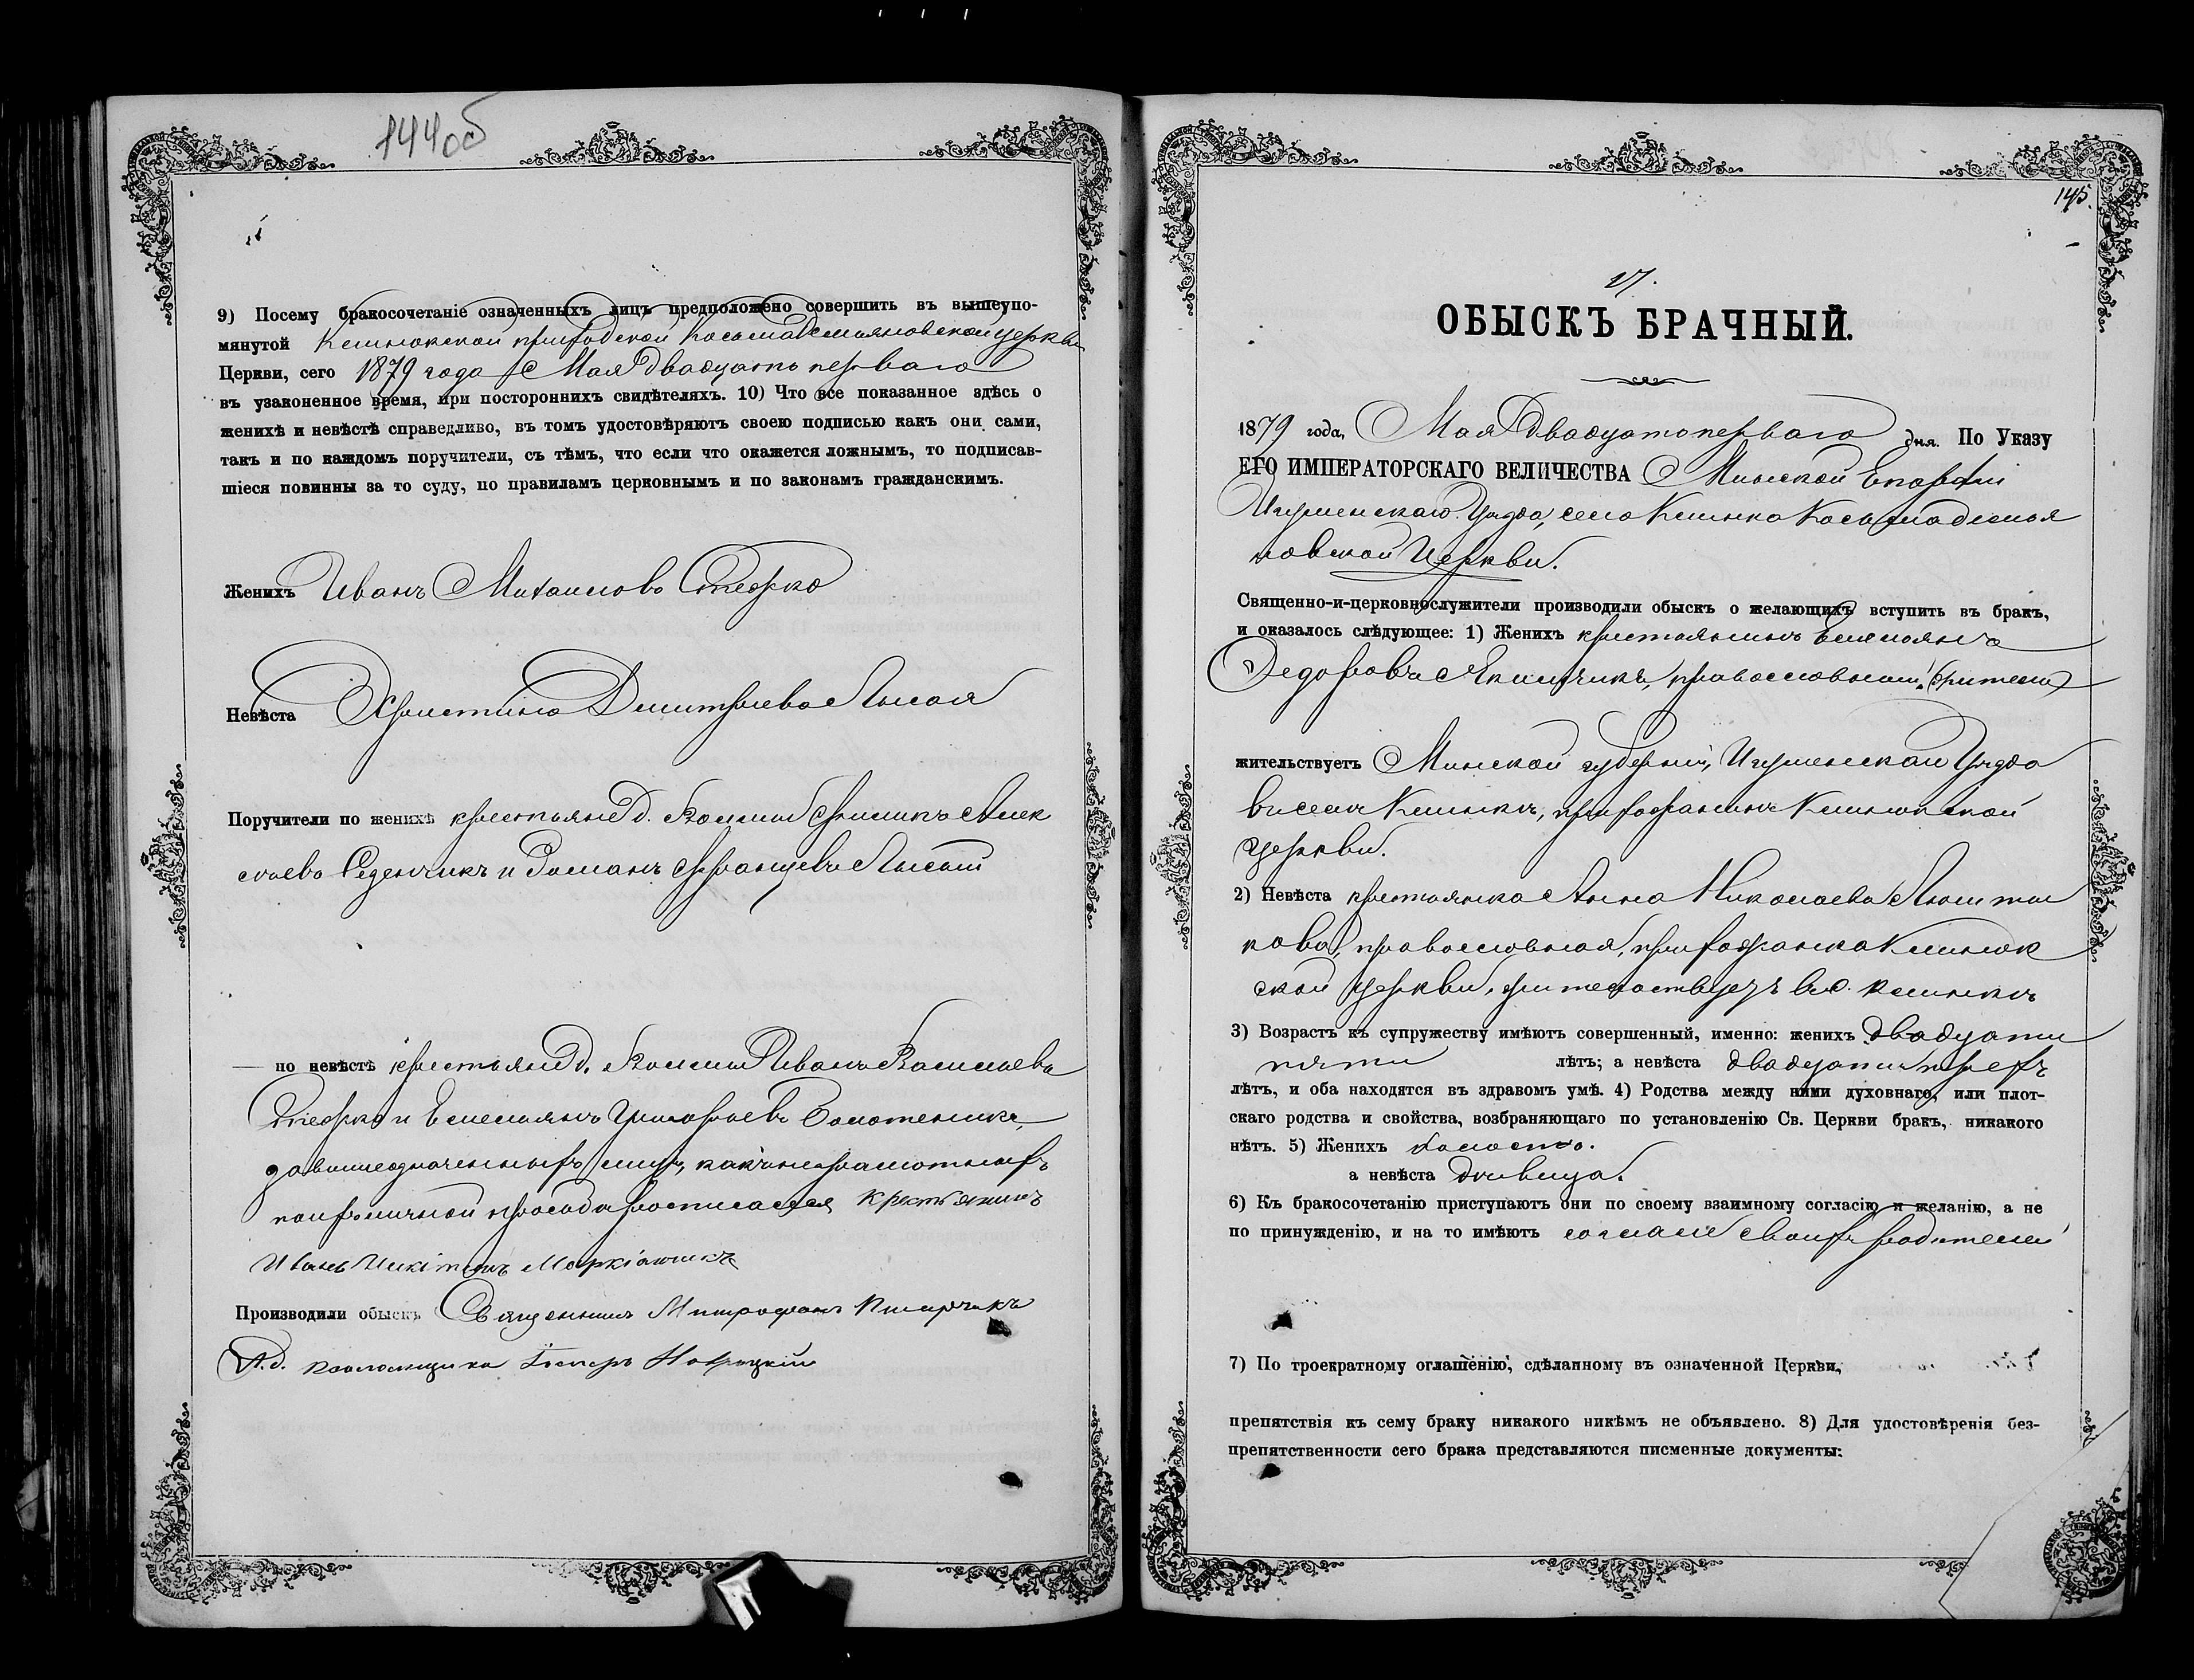 144об
9) Посему бракосочетаніе означенныхъ лицъ предположено совершить въ вышеупо-
мянутой Клинокской приходской Косьмадемьяновской церкви
Церкви, сего 1879 года Мая двадцать перваго
въ узаконенное время, при постороннихъ свидѣтеляхъ. 10) Что все показанное здѣсь о
женихѣ и невѣстѣ справедливо, въ томъ удостовѣряютъ своею подписью какъ они сами,
такъ и по каждомъ поручители, съ тѣмъ, что если что окажется ложнымъ, то подписав-
шіеся повинны за то суду, по правиламъ церковнымъ и по законамъ гражданскимъ.
Женихъ Иванъ Михаиловъ
Невѣста Христина Дмитріева Лысая
Поручители по женихѣ крестьяне д. Филипъ Алек
сѣевъ Реденчикъ и Романъ Францевъ Лысый
— по невѣстѣ крестьяне д. Иванъ Васильевъ
и Емельянъ Григорьевъ
за вышеозначенныхъ лицъ, какъ неграмотныхъ
по ихъ личной просьбѣ росписался крестьянинъ
Иванъ Никітинъ
Производили обыскъ Священникъ Митрофанъ
И.д. псаломщика Навроцкій
145.
17.
ОБЫСКЪ БРАЧНЫЙ.
1879 года, Мая двадцать перваго дня. По Указу
ЕГО ИМПЕРАТОРСКАГО ВЕЛИЧЕСТВА Минской Епархіи
Игуменскаго Уѣзда, села Клинка Косьмадемья
новской Церкви.
Священно-и-церковнослужители производили обыскъ о желающихъ вступить въ бракъ,
и оказалось слѣдующее: 1) Женихъ крестьянинъ Емельянъ
Федоровъ Якимчикъ, православный,
жительствуетъ Минской губерніи, Игуменскаго Уѣзда
въ селѣ Клинкѣ, прихожанинъ Клинокской
церкви.
2) Невѣста крестьянка Анна Николаева
кова, православная, прихожанка Клинок
ской церкви, жительствуетъ въ с. Клинкѣ
3) Возрастъ къ супружеству имѣютъ совершенный, именно: женихъ двадцати
пяти лѣтъ; а невѣста двадцати трехъ
лѣтъ, и оба находятся въ здравомъ умѣ. 4) Родства между ними духовнаго, или плот-
скаго родства и свойства, возбраняющаго по установленію Св. Церкви бракъ, никакого
нѣтъ. 5) Женихъ холостъ.
а невѣста дѣвица.
6) Къ бракосочетанію приступаютъ они по своему взаимному согласію и желанію, а не
по принужденію, и на то имѣютъ согласіе своихъ родителей
7) По троекратному оглашенію, сдѣланному въ означенной Церкви,
препятствія къ сему браку никакого никѣмъ не объявлено. 8) Для удостовѣренія без-
препятственности сего брака представляются писменные документы: